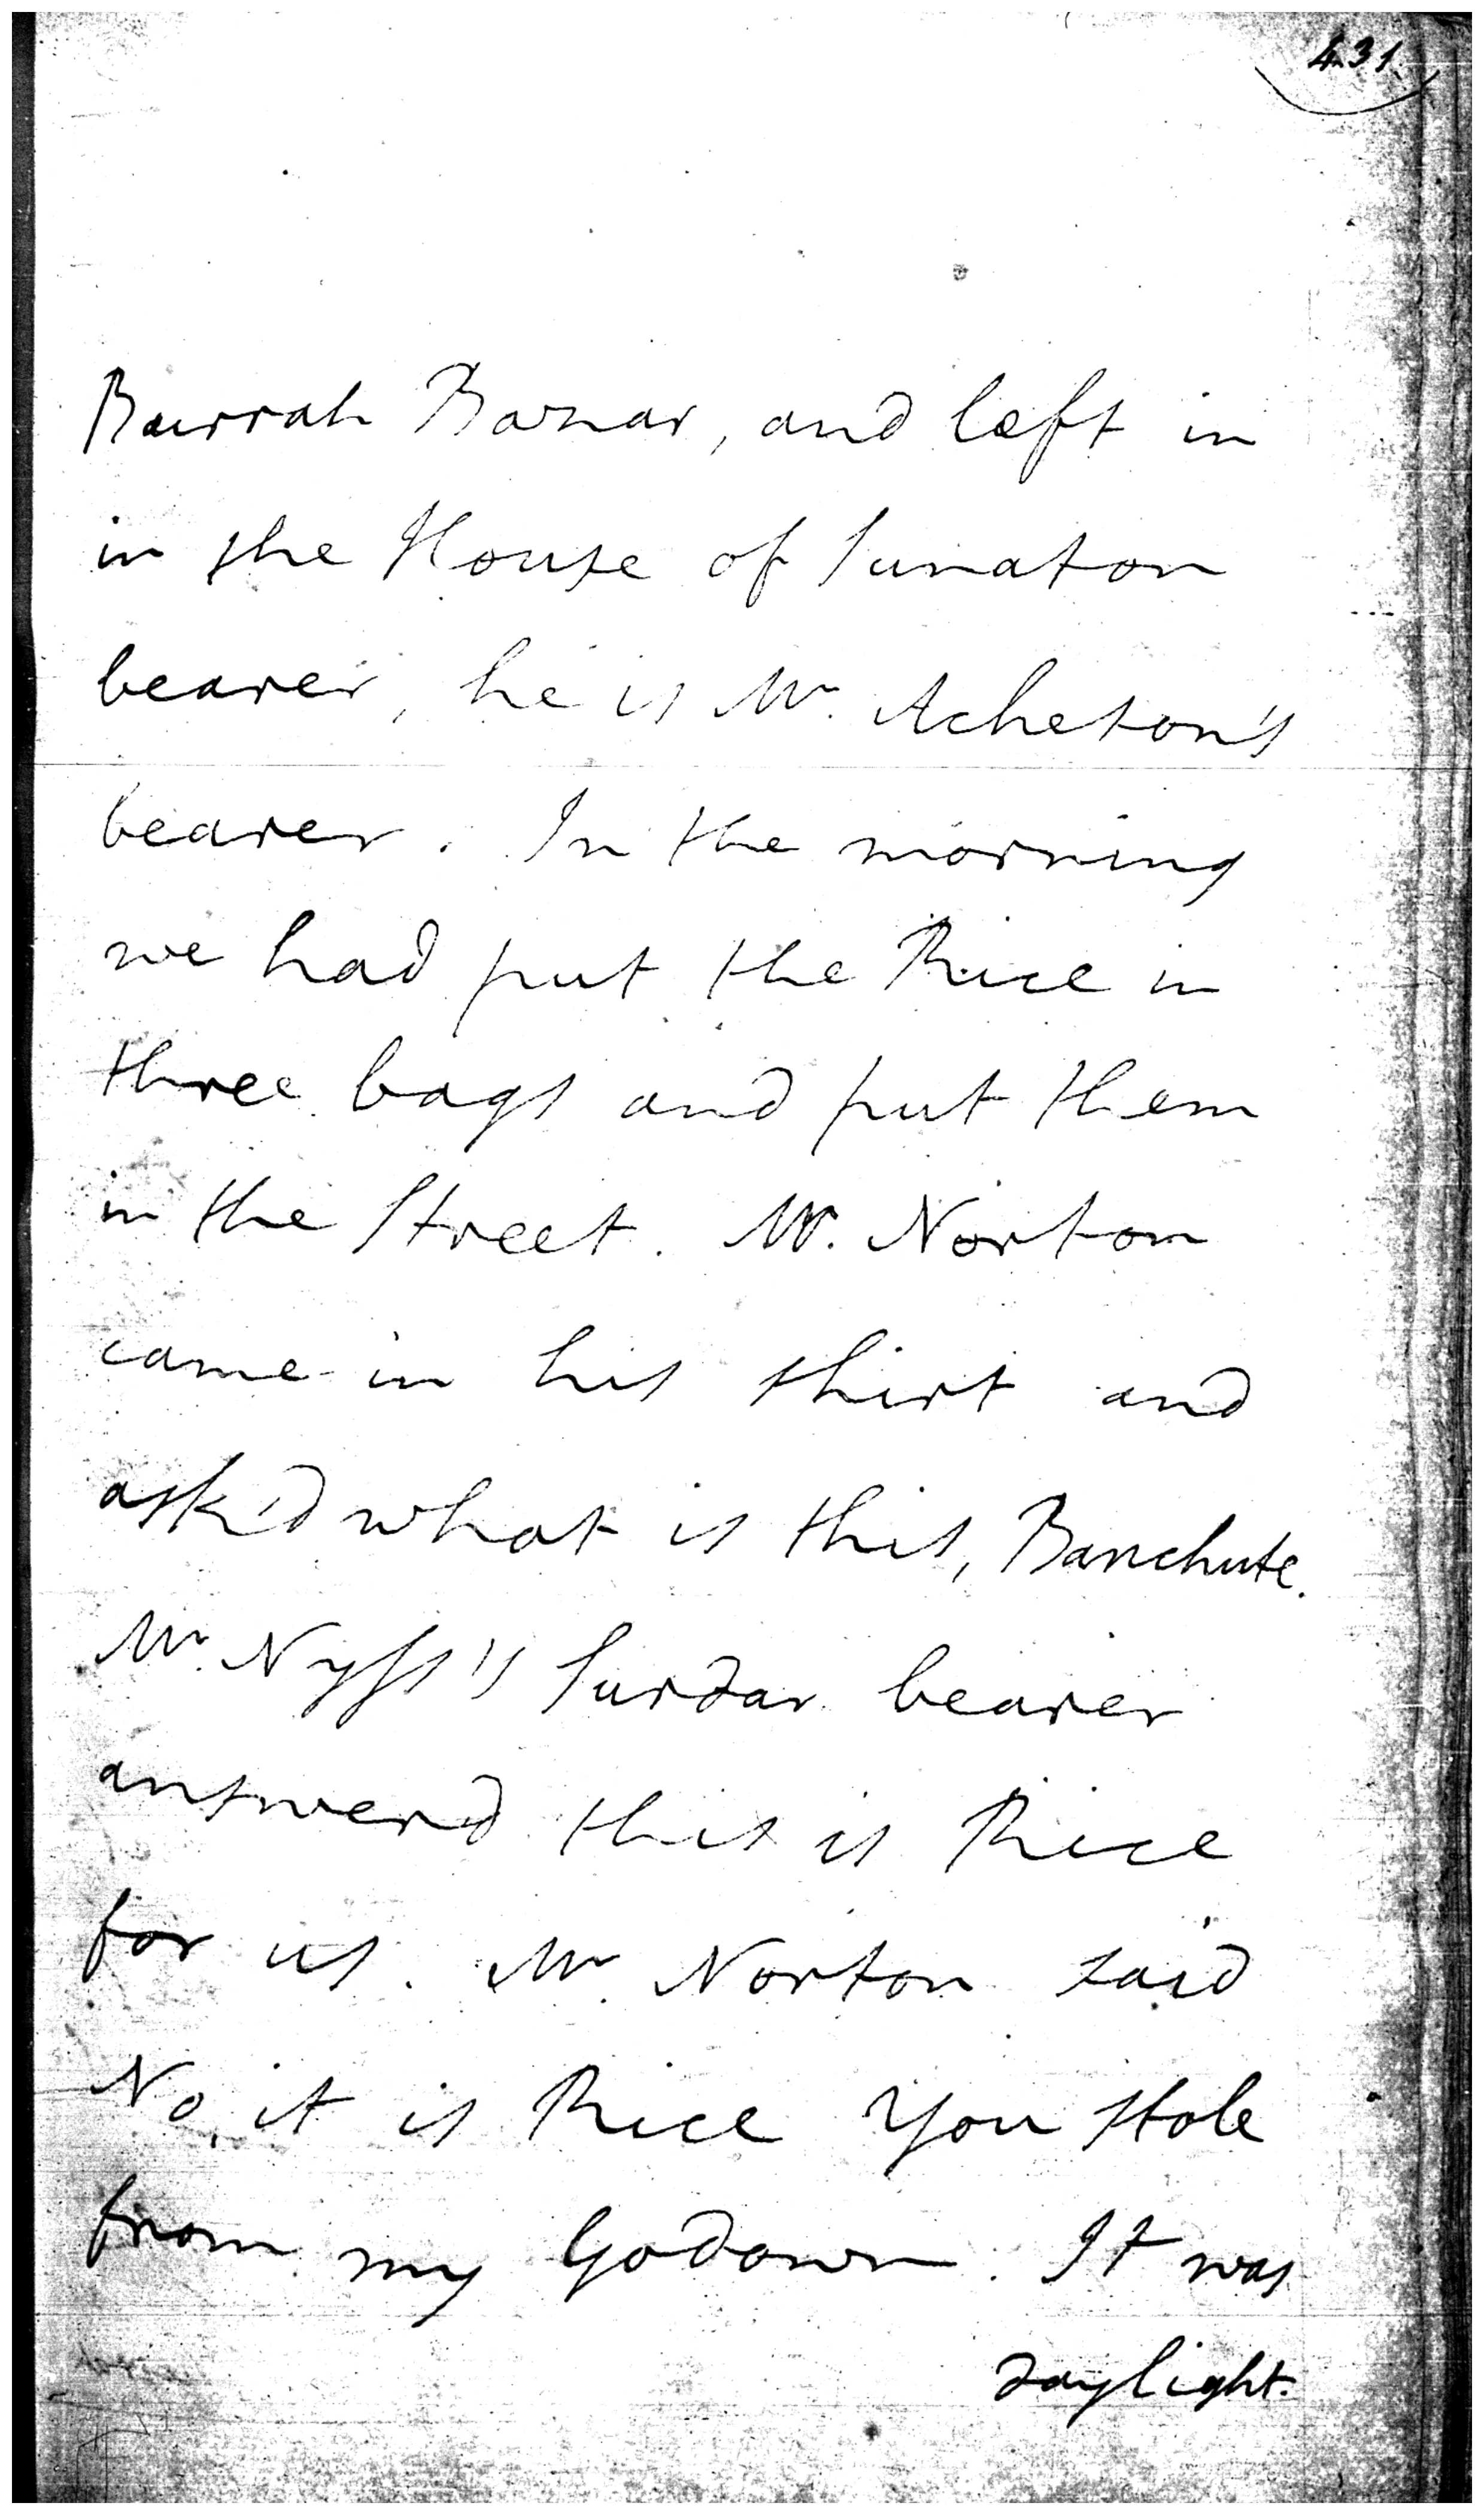 431.
Burrah Bazar, and left in
in the House of Sunaton
bearer, he is Mr. Acheson's
bearer. In the morning
we had put the Rice in
three bags and put them
in the Street. Mr. Norton
came in his shirt and
ask'd what is this, Banchute.
Mr. Nyss's Surdar bearer
answerd this is Rice
for us. Mr. Norton said
No, it is Rice You stole
from my Godown. It was
daylight.